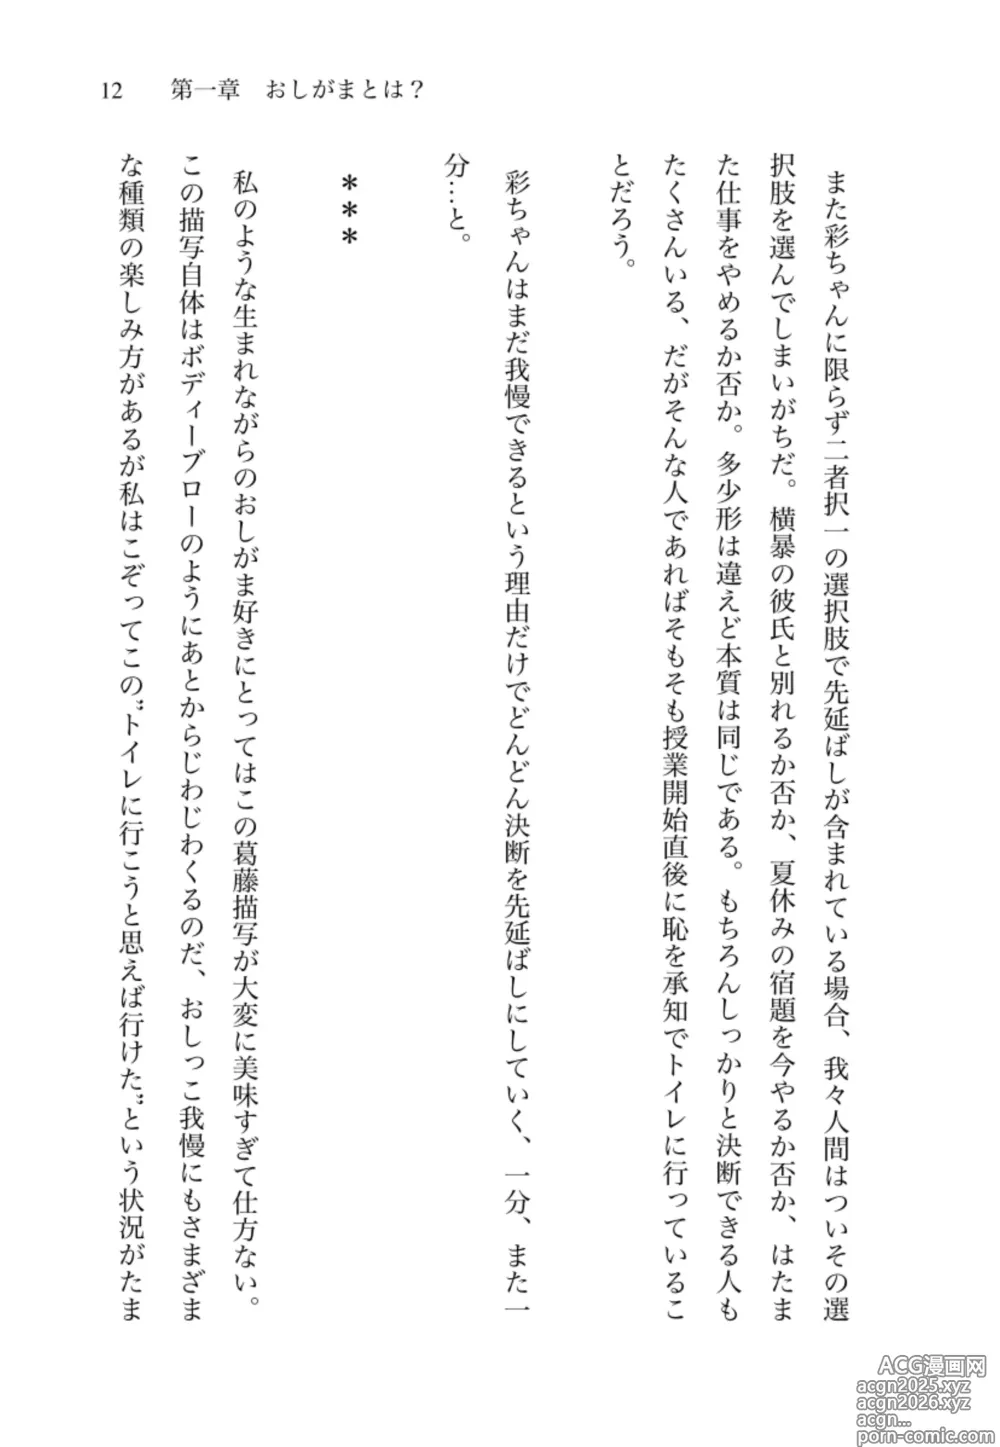 12　第一章　おしがまとは？
　また彩ちゃんに限らず二者択一の選択肢で先延ばしが含まれている場合、我々人間はついその選
択肢を選んでしまいがちだ。横暴の彼氏と別れるか否か、夏休みの宿題を今やるか否か、はたま
た仕事をやめるか否か。多少形は違えど本質は同じである。もちろんしっかりと決断できる人も
たくさんいる、だがそんな人であればそもそも授業開始直後に恥を承知でトイレに行っているこ
とだろう。
　彩ちゃんはまだ我慢できるという理由だけでどんどん決断を先延ばしにしていく、一分、また一
分…と。
＊＊＊
　私のような生まれながらのおしがま好きにとってはこの葛藤描写が大変に美味すぎて仕方ない。
この描写自体はボディーブローのようにあとからじわじわくるのだ、おしっこ我慢にもさまざま
な種類の楽しみ方があるが私はこぞってこの〝トイレに行こうと思えば行けた〟という状況がたま
ACG漫画网
acgn2025.xyz
acgn2026.xyz
acgn...
porn-comic.com